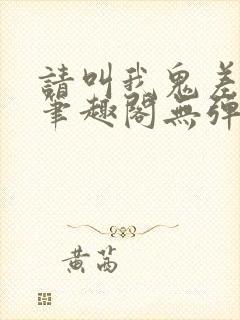 請叫我鬼差
筆趣閣無彈
黃茜